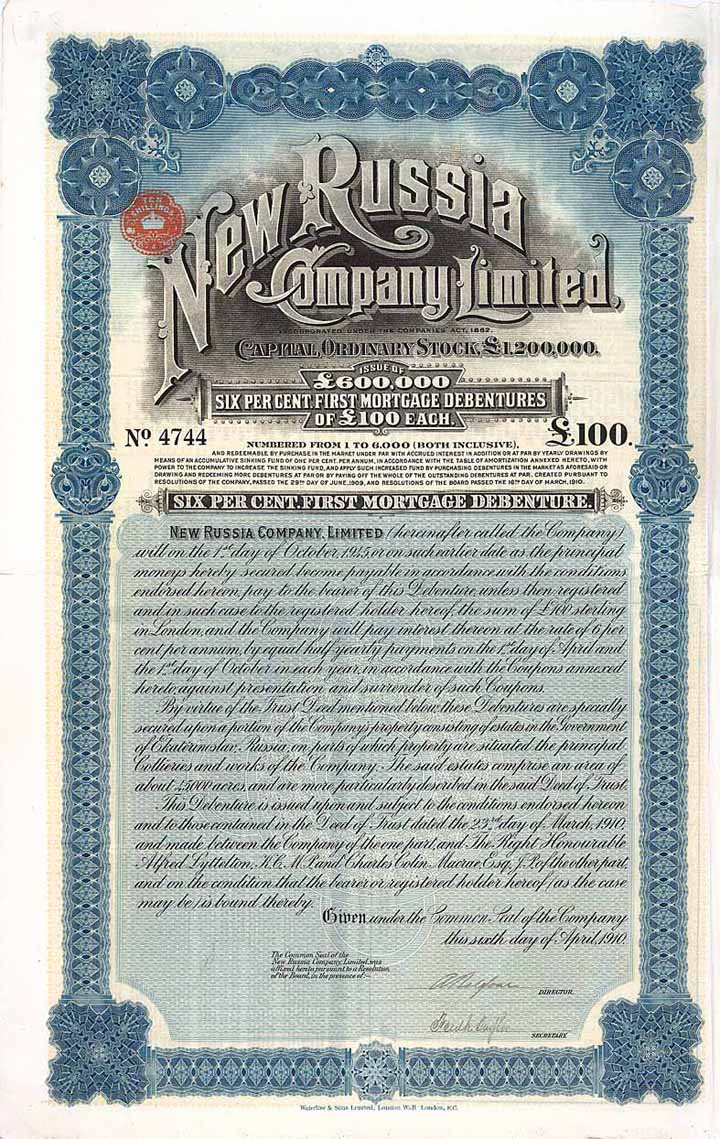 New Russia
Company Limited.
INCORPORATED UNDER THE COMPANIES ACT, 1862.
CAPITAL, ORDINARY STOCK, £1,200,000.
ISSUE OF
£600,000
SIX PER CENT. FIRST MORTGAGE DEBENTURES
OF £100 EACH.
No 4744
NUMBERED FROM 1 TO 6,000 (BOTH INCLUSIVE),
£100.
AND REDEEMABLE BY PURCHASE IN THE MARKET UNDER PAR WITH ACCRUED INTEREST IN ADDITION OR AT PAR BY YEARLY DRAWINGS BY
MEANS OF AN ACCUMULATIVE SINKING FUND OF ONE PER CENT. PER ANNUM, IN ACCORDANCE WITH THE TABLE OF AMORTIZATION ANNEXED HERETO, WITH
POWER TO THE COMPANY TO INCREASE THE SINKING FUND, AND APPLY SUCH INCREASED FUND BY PURCHASING DEBENTURES IN THE MARKET AS AFORESAID OR
DRAWING AND REDEEMING MORE DEBENTURES AT PAR OR BY PAYING OFF THE WHOLE OF THE OUTSTANDING DEBENTURES AT PAR, CREATED PURSUANT TO
RESOLUTIONS OF THE COMPANY, PASSED THE 29TH DAY OF JUNE, 1909, AND RESOLUTIONS OF THE BOARD PASSED THE 16TH DAY OF MARCH, 1910.
SIX PER CENT. FIRST MORTGAGE DEBENTURE.
NEW RUSSIA COMPANY, LIMITED (hereinafter called the Company)
will on the 1st day of October, 1945, or on such earlier date as the principal
moneys hereby secured become payable in accordance with the conditions
endorsed hereon, pay to the bearer of this Debenture, unless then registered
and in such case to the registered holder hereof, the sum of £100 sterling
in London, and the Company will pay interest thereon at the rate of 6 per
cent per annum, by equal half yearly payments on the 1st day of April and
the 1st day of October in each year, in accordance with the Coupons annexed
hereto, against presentation and surrender of such Coupons.
By virtue of the Trust Deed mentioned below, these Debentures are specially
secured upon a portion of the Company's property consisting of estates in the Government
of Ekaterinoslav, Russia, on parts of which property are situated the principal
Collieries and works of the Company. The said estates comprise an area of
about 45000 acres, and are more particularly described in the said Deed of Trust.
This Debenture is issued upon and subject to the conditions endorsed hereon
and to those contained in the Deed of Trust dated the 23rd day of March, 1910,
and made between the Company of the one part, and The Right Honourable
Alfred Lyttelton, K.C., M.P. and Charles Colin Macrae, Esq., J.P. of the other part,
and on the condition that the bearer or registered holder hereof (as the case
may be) is bound thereby.
Given under the Common Seal of the Company
this sixth day of April, 1910.
The Common Seal of the
New Russia Company, Limited, was
affixed hereto pursuant to a Resolution
of the Board, in the presence of:-
DIRECTOR.
SECRETARY.
Waterlow & Sons Limited, London Wall London, E.C.